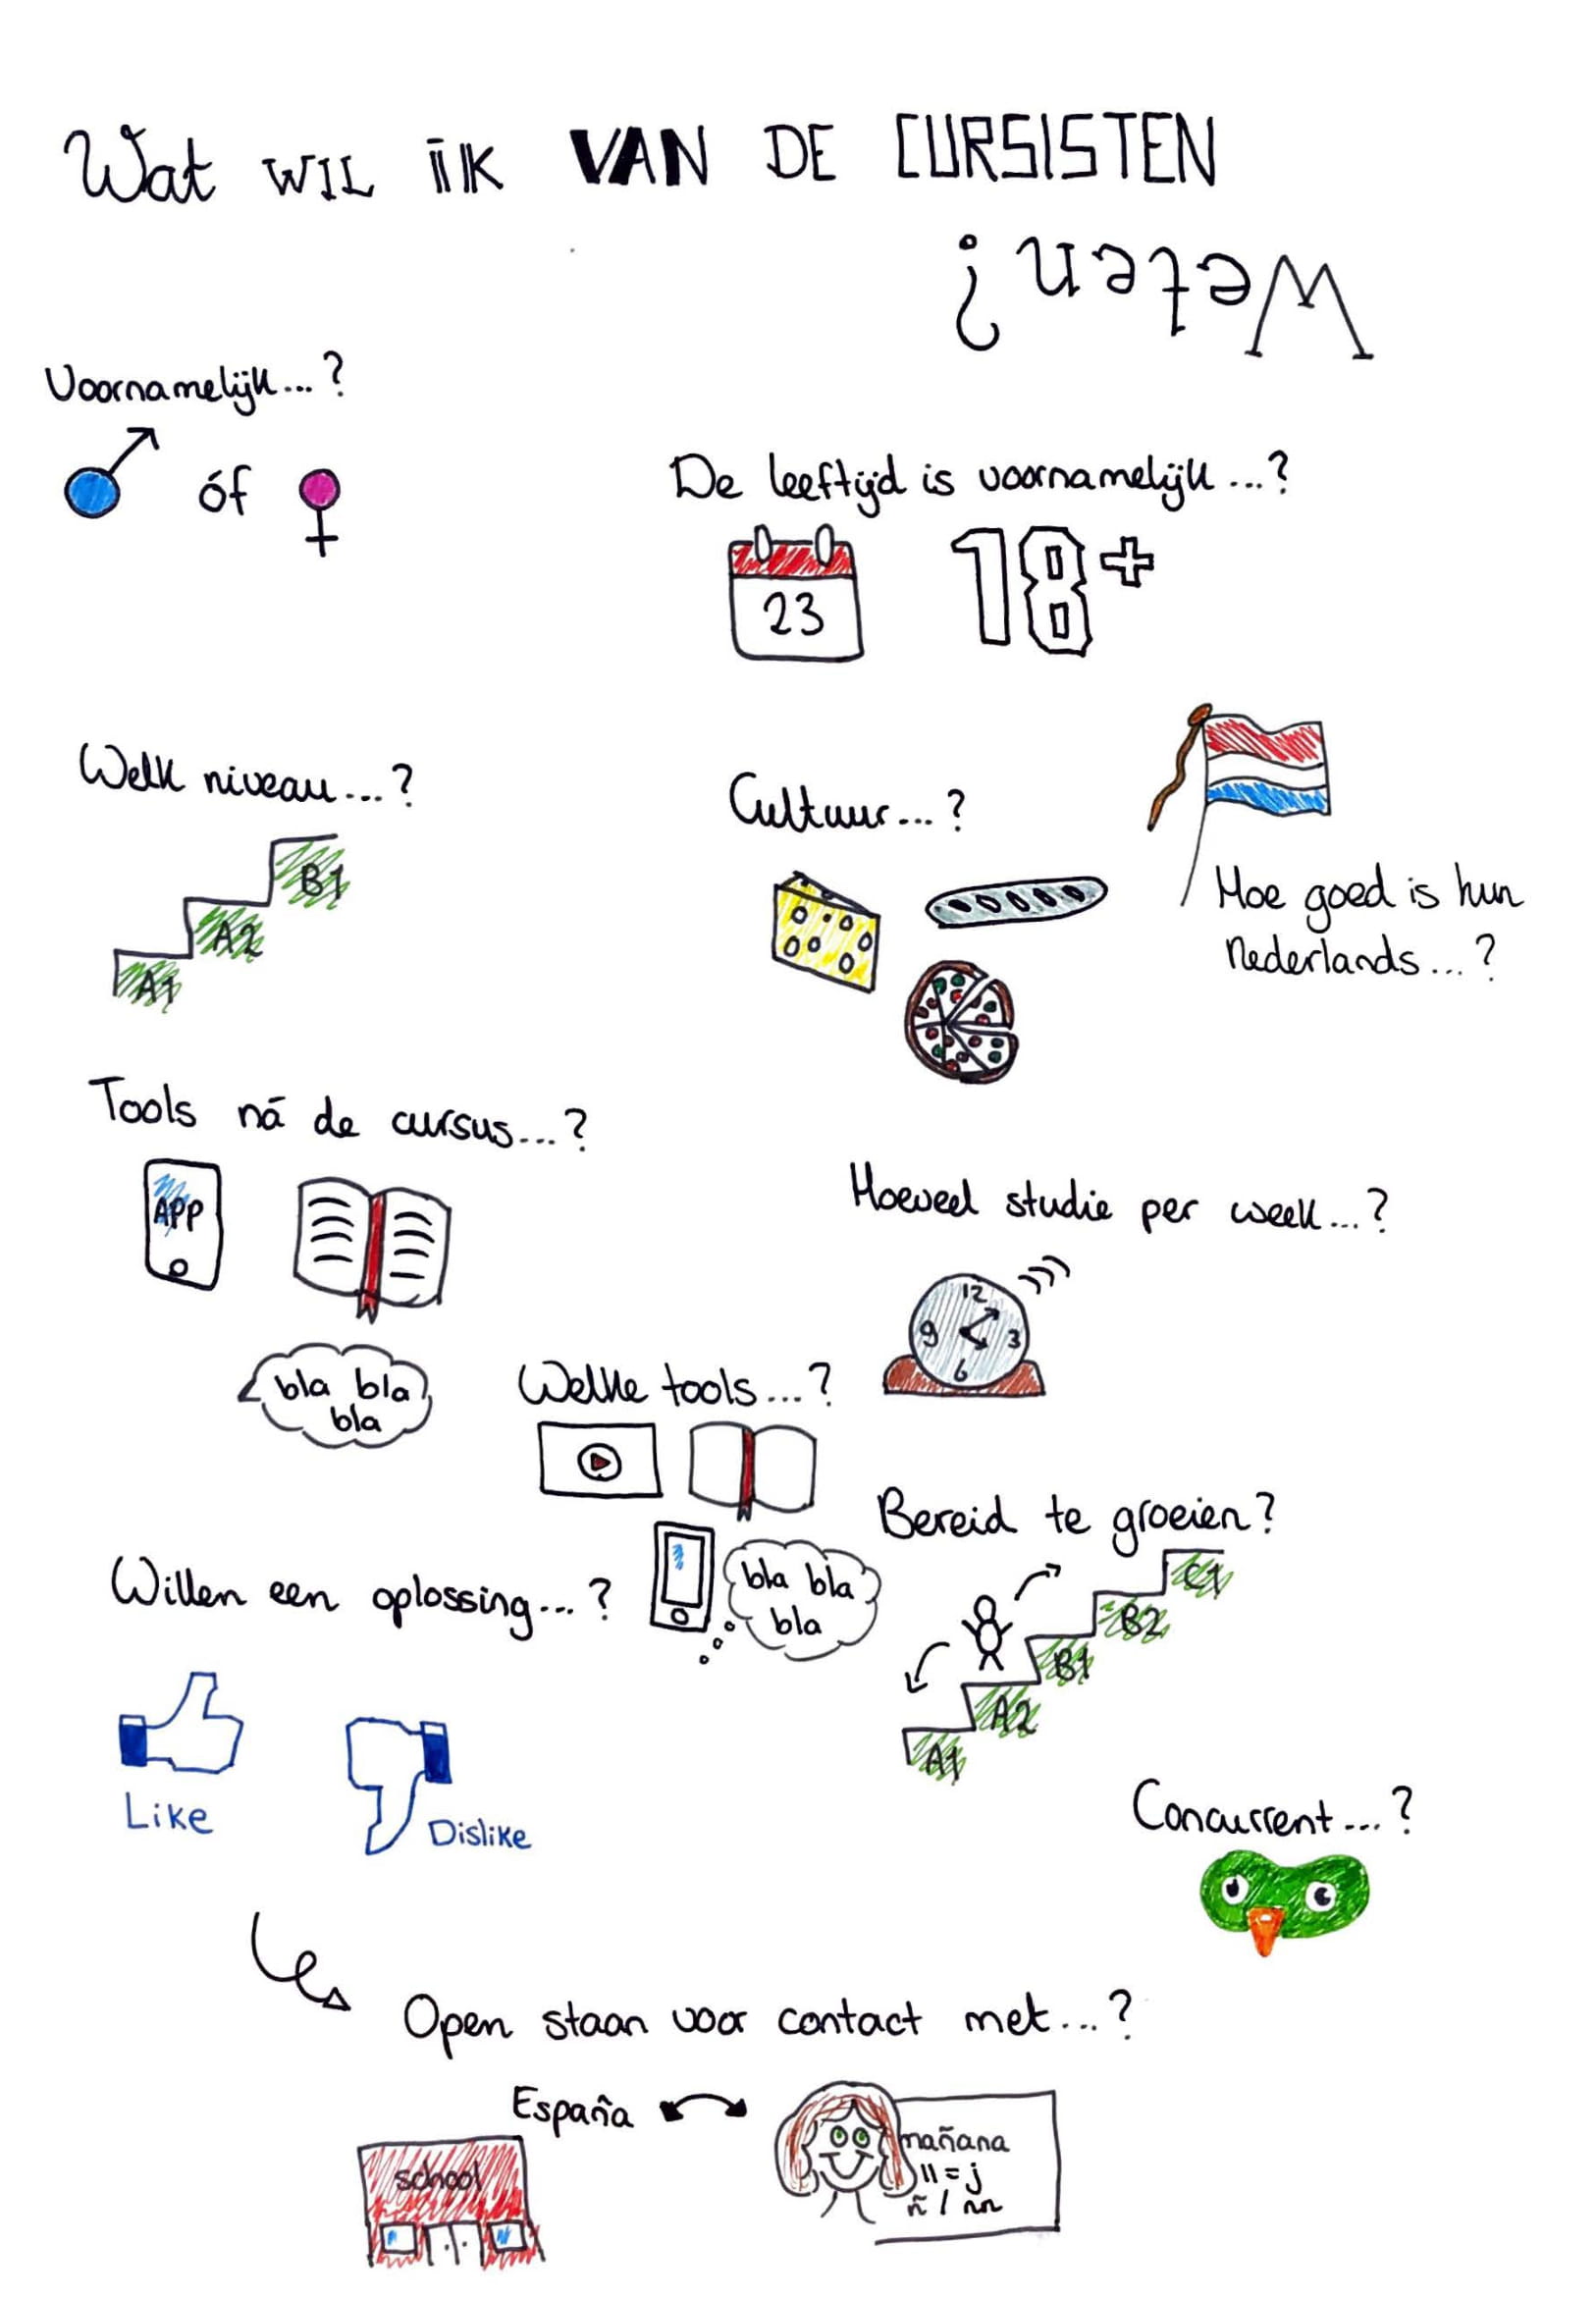 Wat WIL IK VAN DE CURSISTEN
Weten?
Voornamelijk...?
óf
De leeftijd is voornamelijk...?
23
18+
Welk niveau...?
B1
A2
A1
Cultuur...?
Hoe goed is hun
nederlands...?
Tools ná de cursus...?
APP
bla bla
bla
Hoeveel studie per week...?
12
9 3
6
Welke tools...?
bla bla
bla
Willen een oplossing...?
Like
Dislike
Bereid te groeien?
C1
B2
B1
A2
A1
Concurrent...?
Open staan voor contact met...?
España
school
mañana
ll = j
ñ / nn